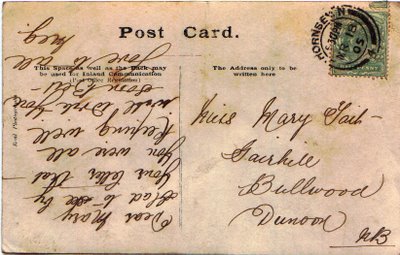 Post Card
This Space as well as the Back may
be used for Inland Communication
(Post Office Regulation)
The address only to be
written here
HORNSEY.N
Miss Mary Tait
Fairhill
Bullwood
Dunoon
NB
Dear Mary
Glad to see by
your letter that
you were all
Keeping well
will write you
soon
love to all
Meg.